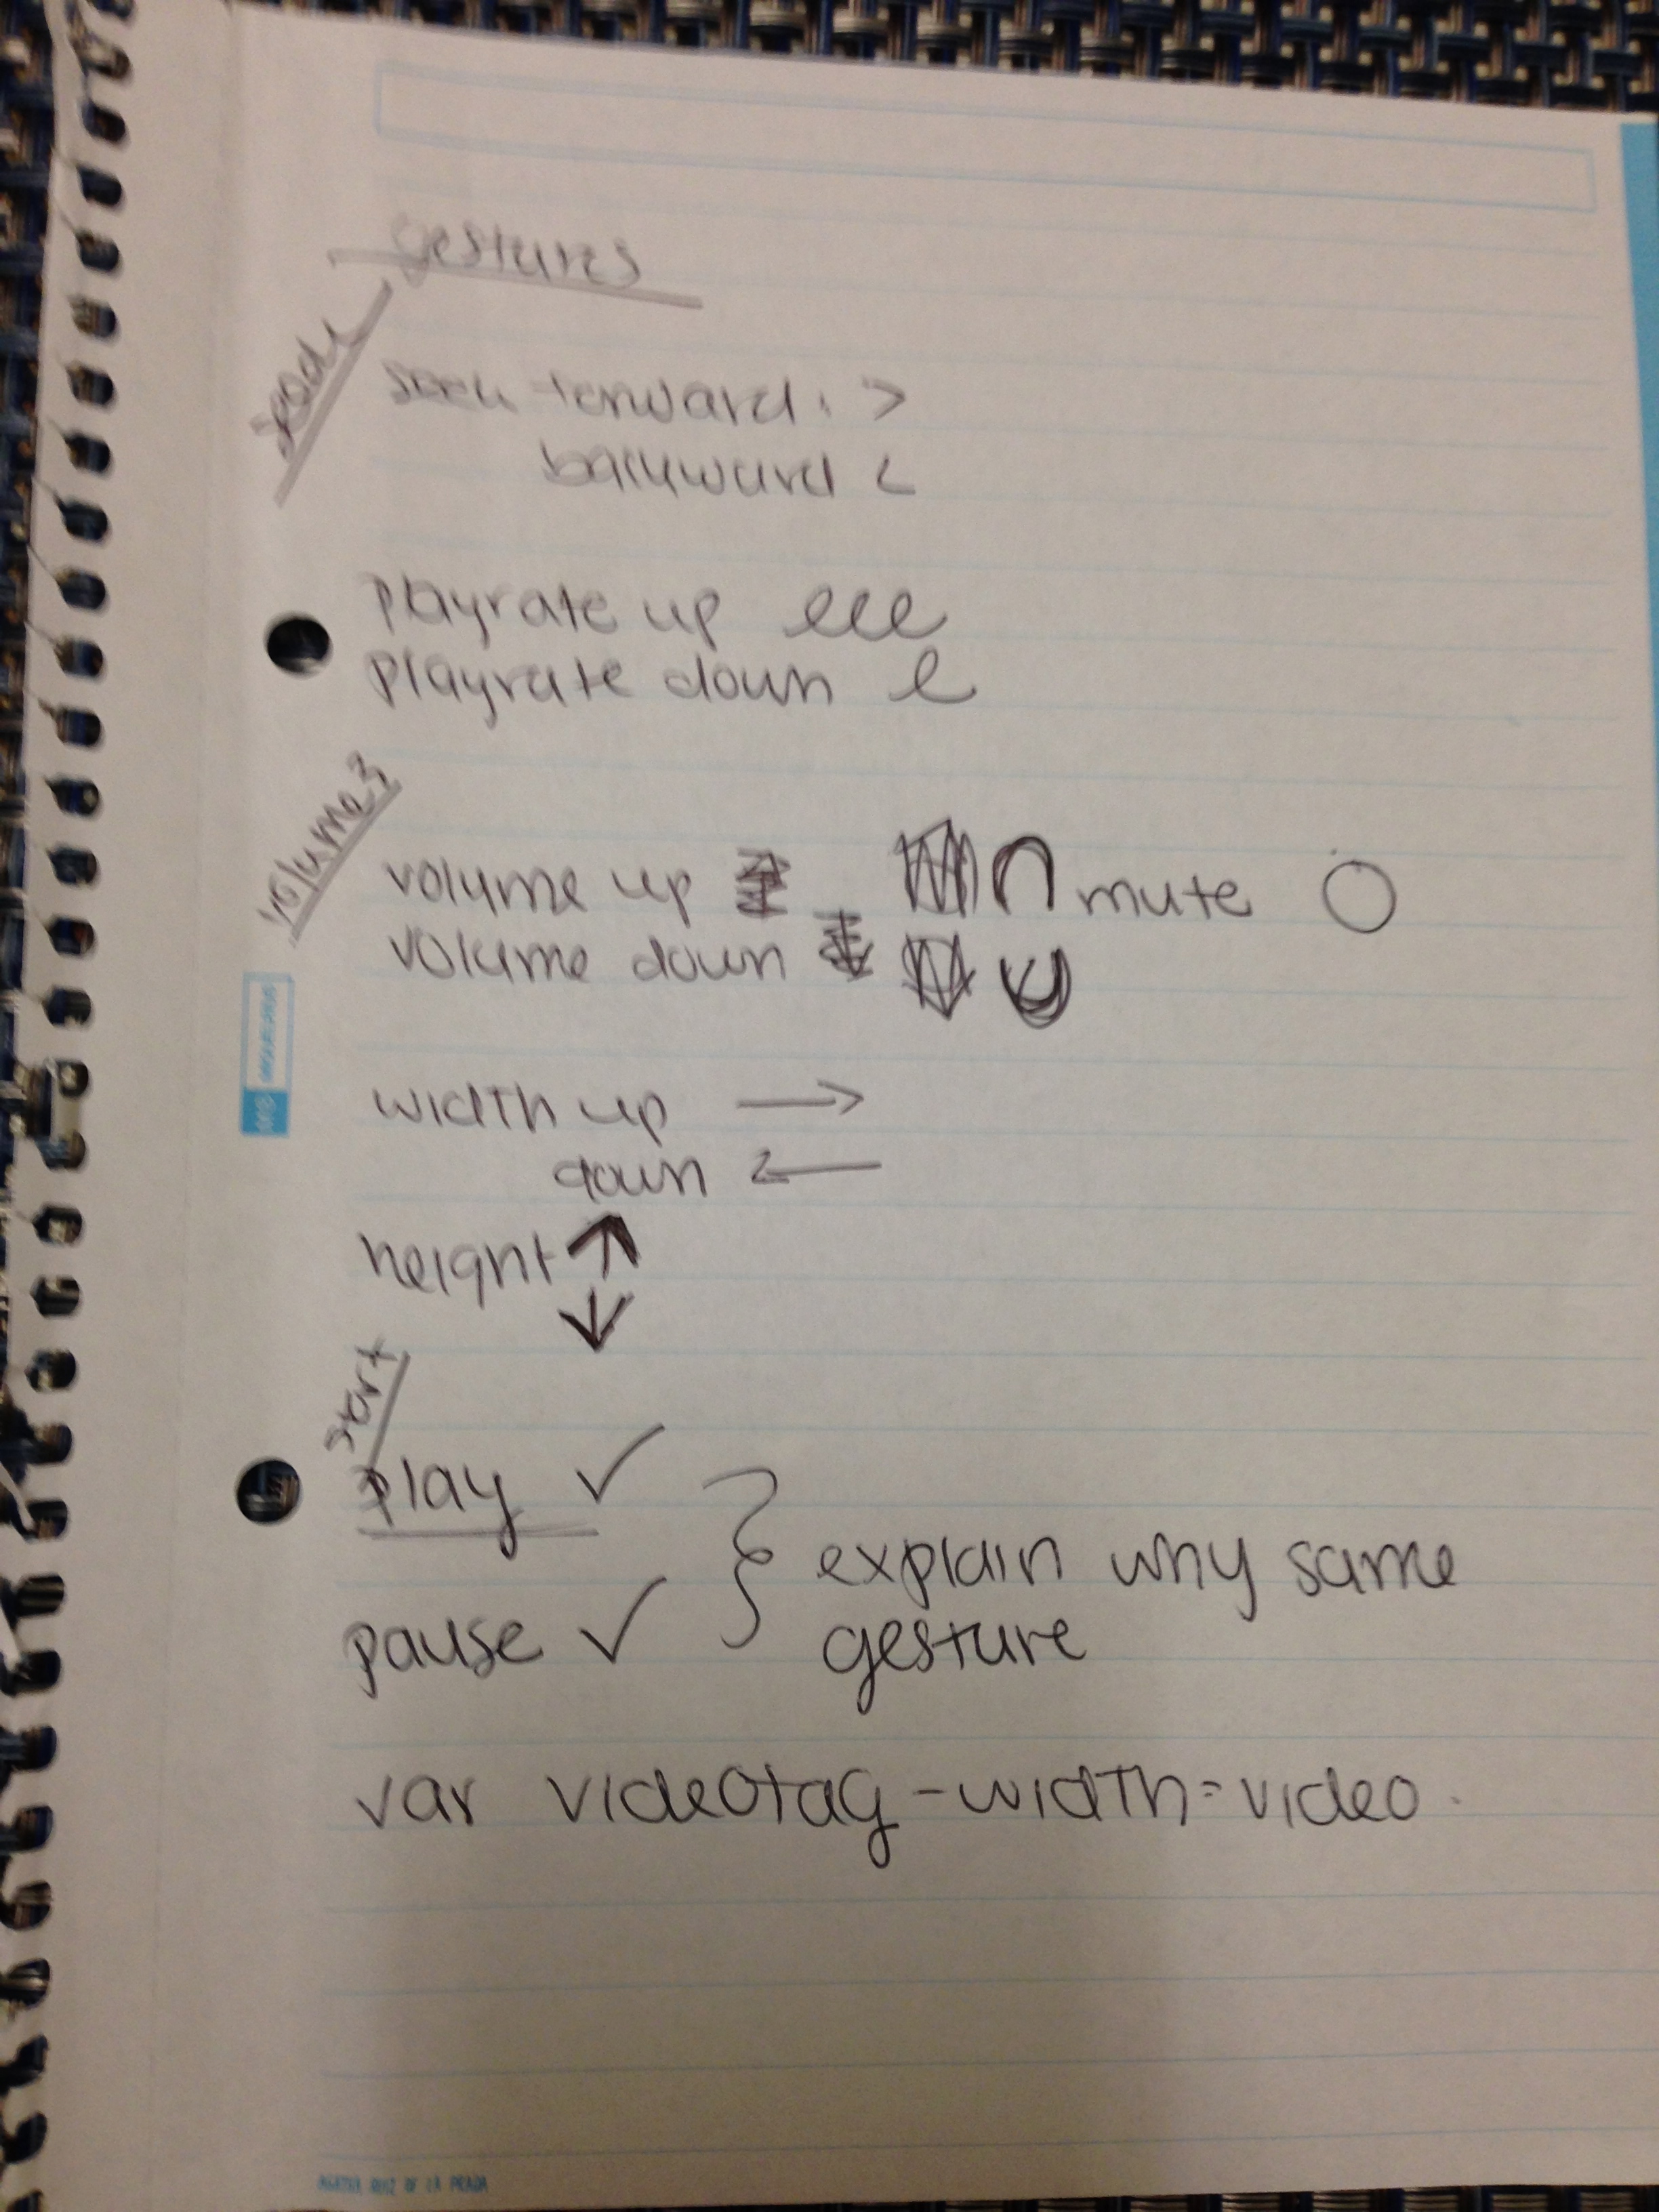 gestures
seek forward: >
backward <
playrate up eee
playrate down e
volume3
volume up ∩ mute ○
volume down ∪
width up →
down ←
height ↑
↓
start
play ✓
pause ✓
explain why same
gesture
var videotag-width=video.
AGATHA RUIZ DE LA PRADA